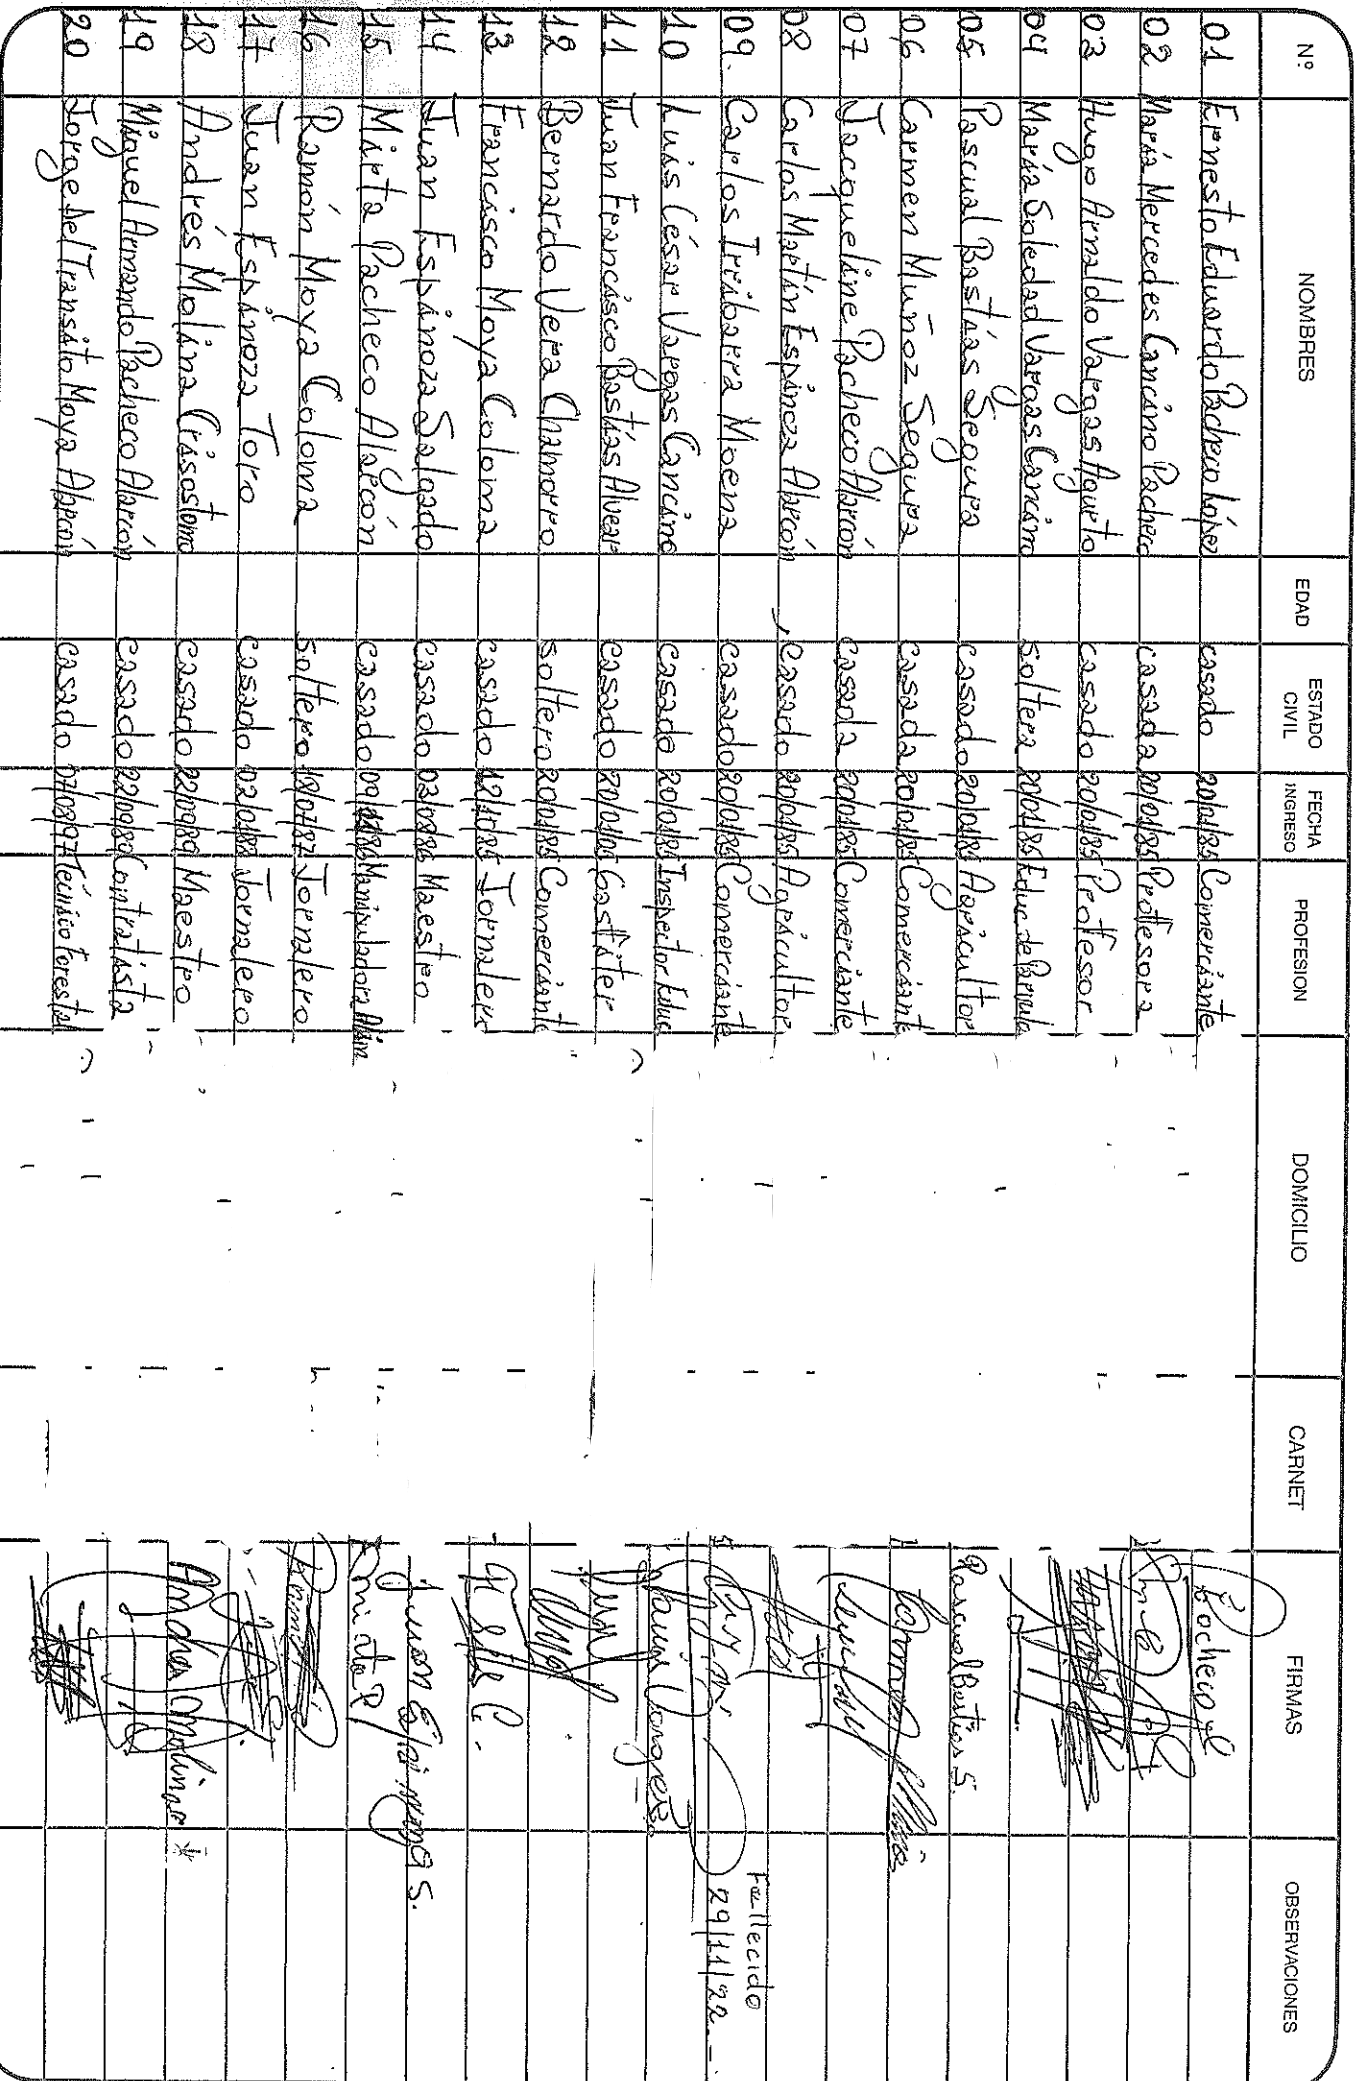 N.º NOMBRES EDAD ESTADO CIVIL FECHA INGRESO PROFESION DOMICILIO CARNET FIRMAS OBSERVACIONES
01 Ernesto Eduardo Pacheco López casado 20/01/85 Comerciante
02 María Mercedes Cancino Pacheco casada 20/01/85 Proffesora
03 Hugo Arnaldo Vargas Agurto casado 20/01/85 Proffesor
04 María Soledad Vargas Cancino soltera 20/01/85 Educ. de Parvula
05 Pascual Bastías Segura casado 20/01/85 Agricultor Pascual Bastias S.
06 Carmen Muñoz Segura casada 20/01/85 Comerciante Carmen
07 Jacqueline Pacheco Alarcón casada 20/01/85 Comerciante
08 Carlos Martín Espinoza Alarcón casado 20/01/85 Agricultor
09. Carlos Irribarra Moena casado 20/01/85 Comerciante Fallecido 29/11/22.-
10 Luis César Vargas Cancino casado 20/01/85 Inspector Educ
11 Juan Francisco Bastías Alvear casado 20/01/85 Gasfiter
12 Bernardo Vera Chamorro soltero 20/01/85 Comerciante
13 Francisco Moya Coloma casado 12/10/85 Jornalero
14 Juan Espinoza Salgado casado 03/09/86 Maestro Juan Espinoza S.
15 Mirta Pacheco Alarcón casado Manipuladora Alim
16 Ramón Moya Coloma soltero 18/07/87 Jornalero
17 Juan Espinoza Toro casado Jornalero
18 Andrés Molina Crisostomo casado 22/09/89 Maestro Andres Molina
19 Miguel Armando Pacheco Alarcón casado 22/09/89 Contratista
20 Jorge del Transito Moya Alarcón casado 07/08/97 Técnico Forestal